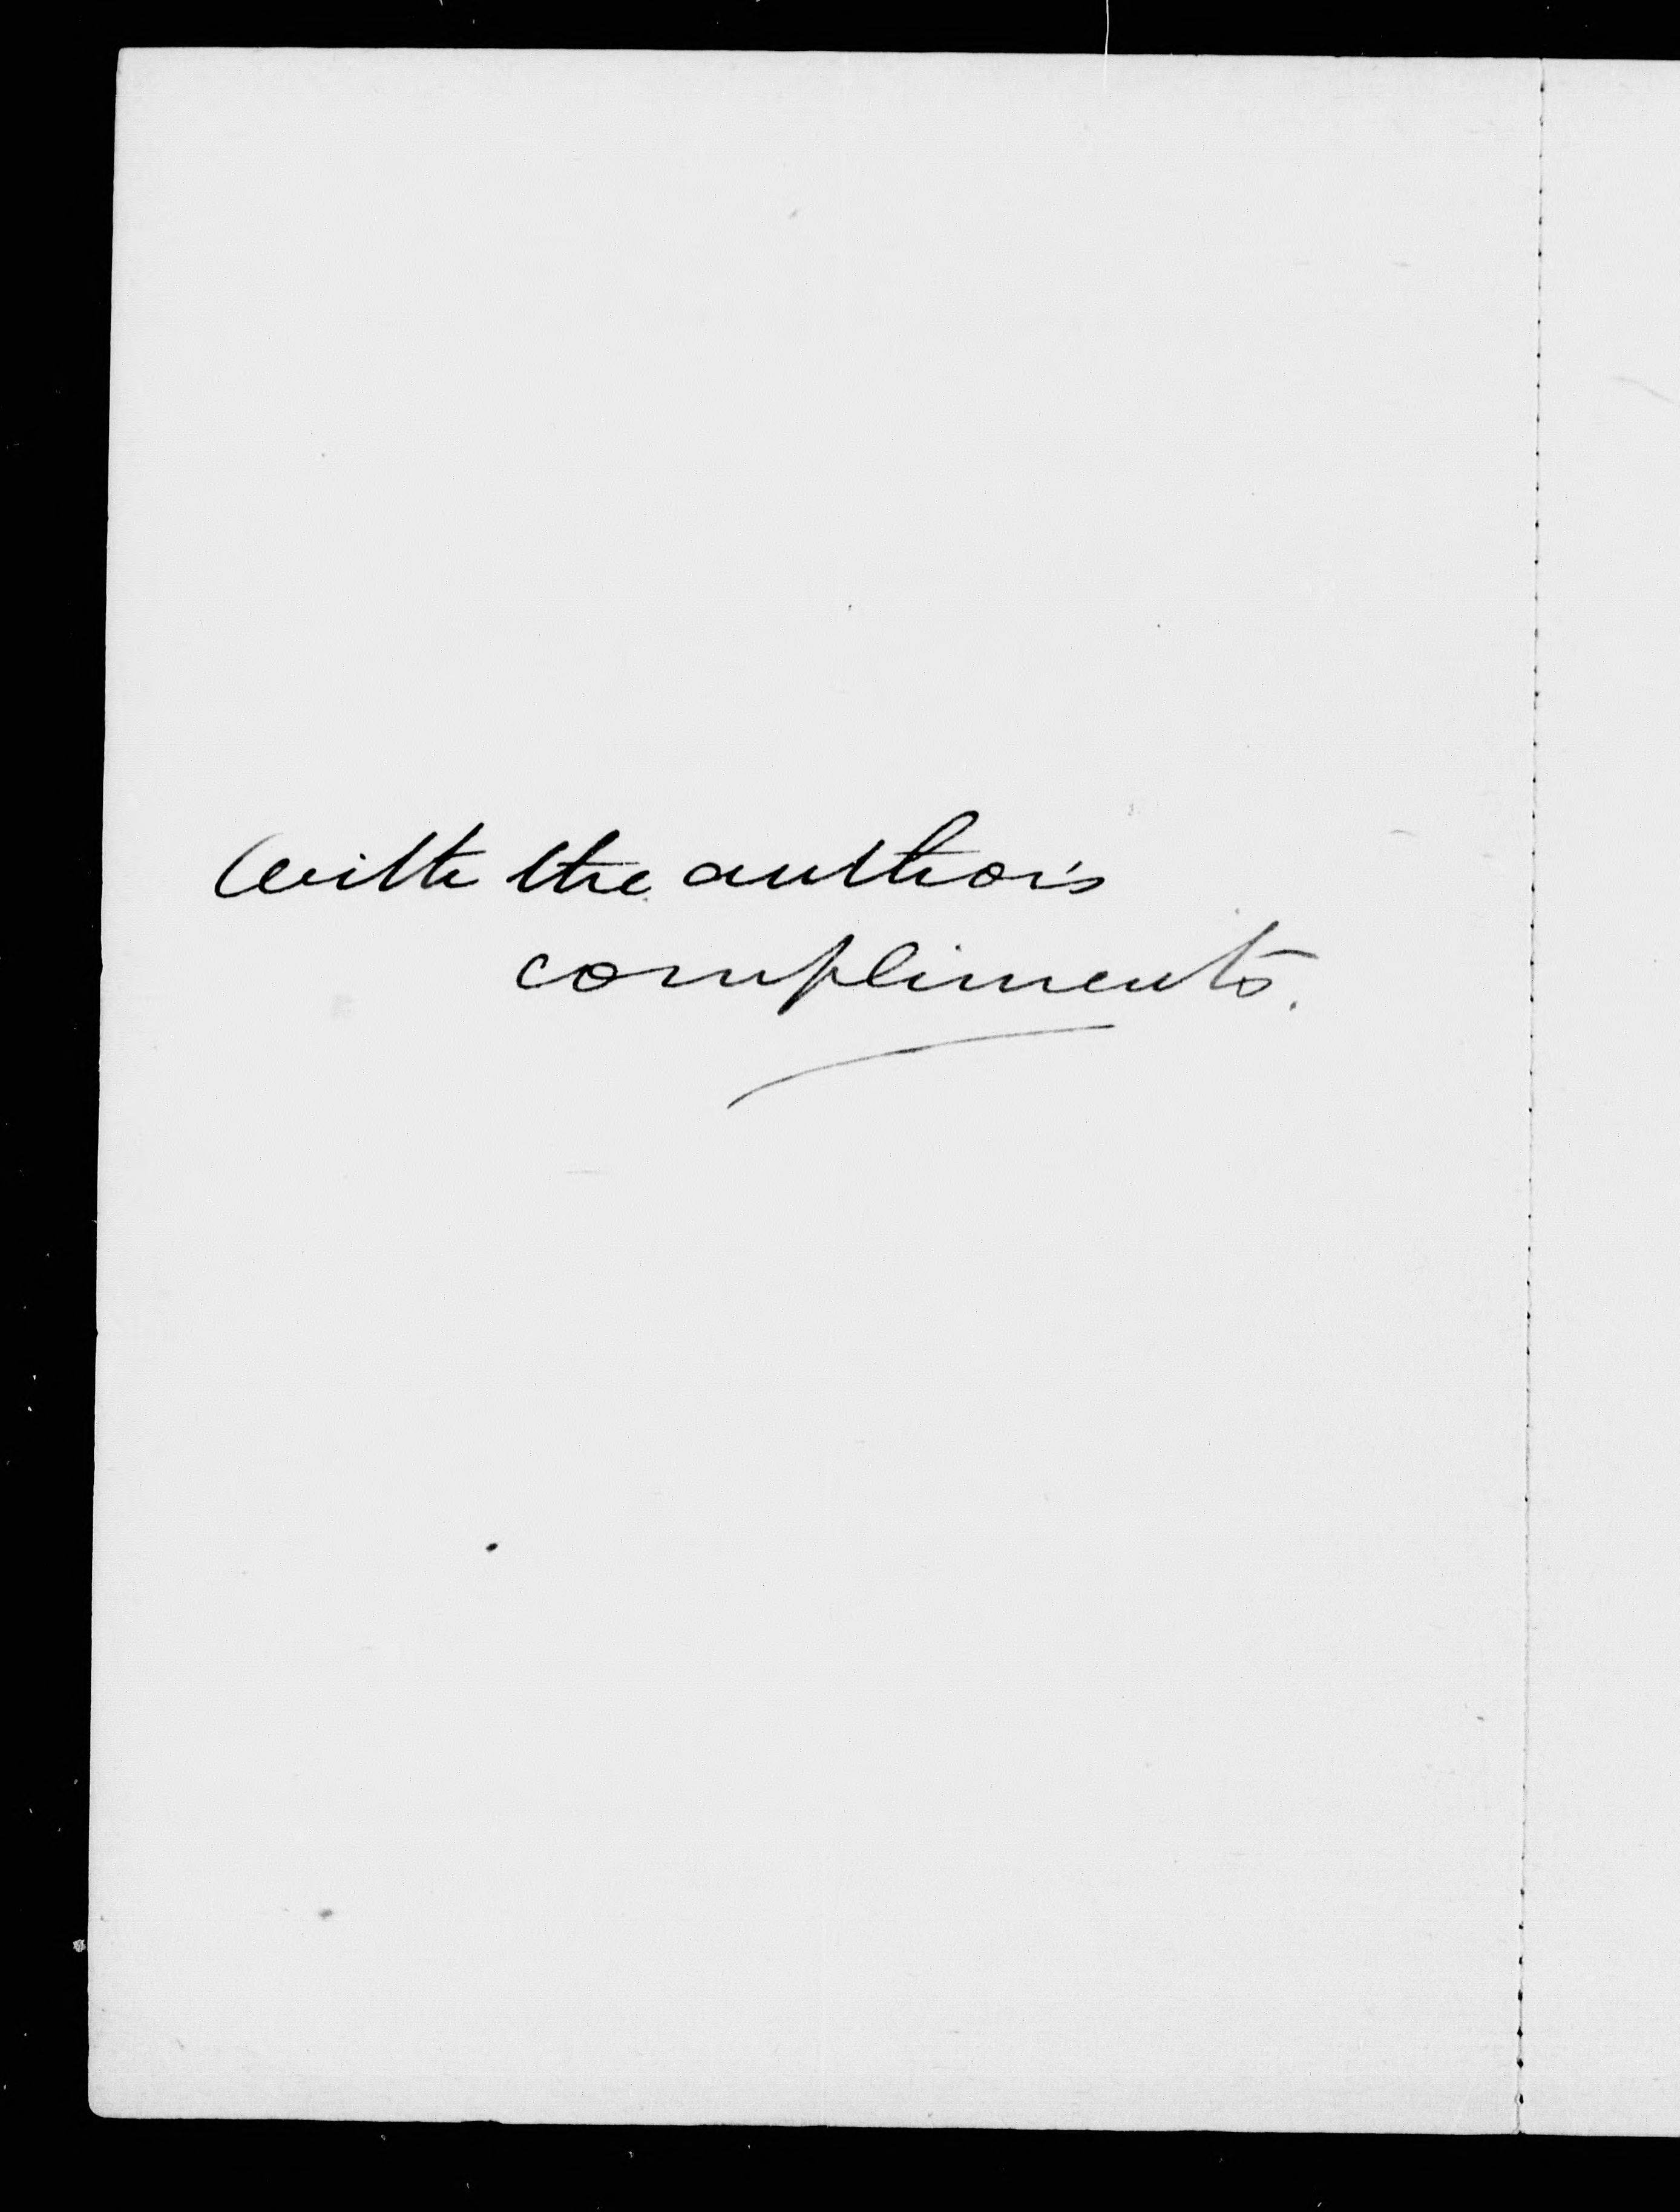 With the author's
compliments.